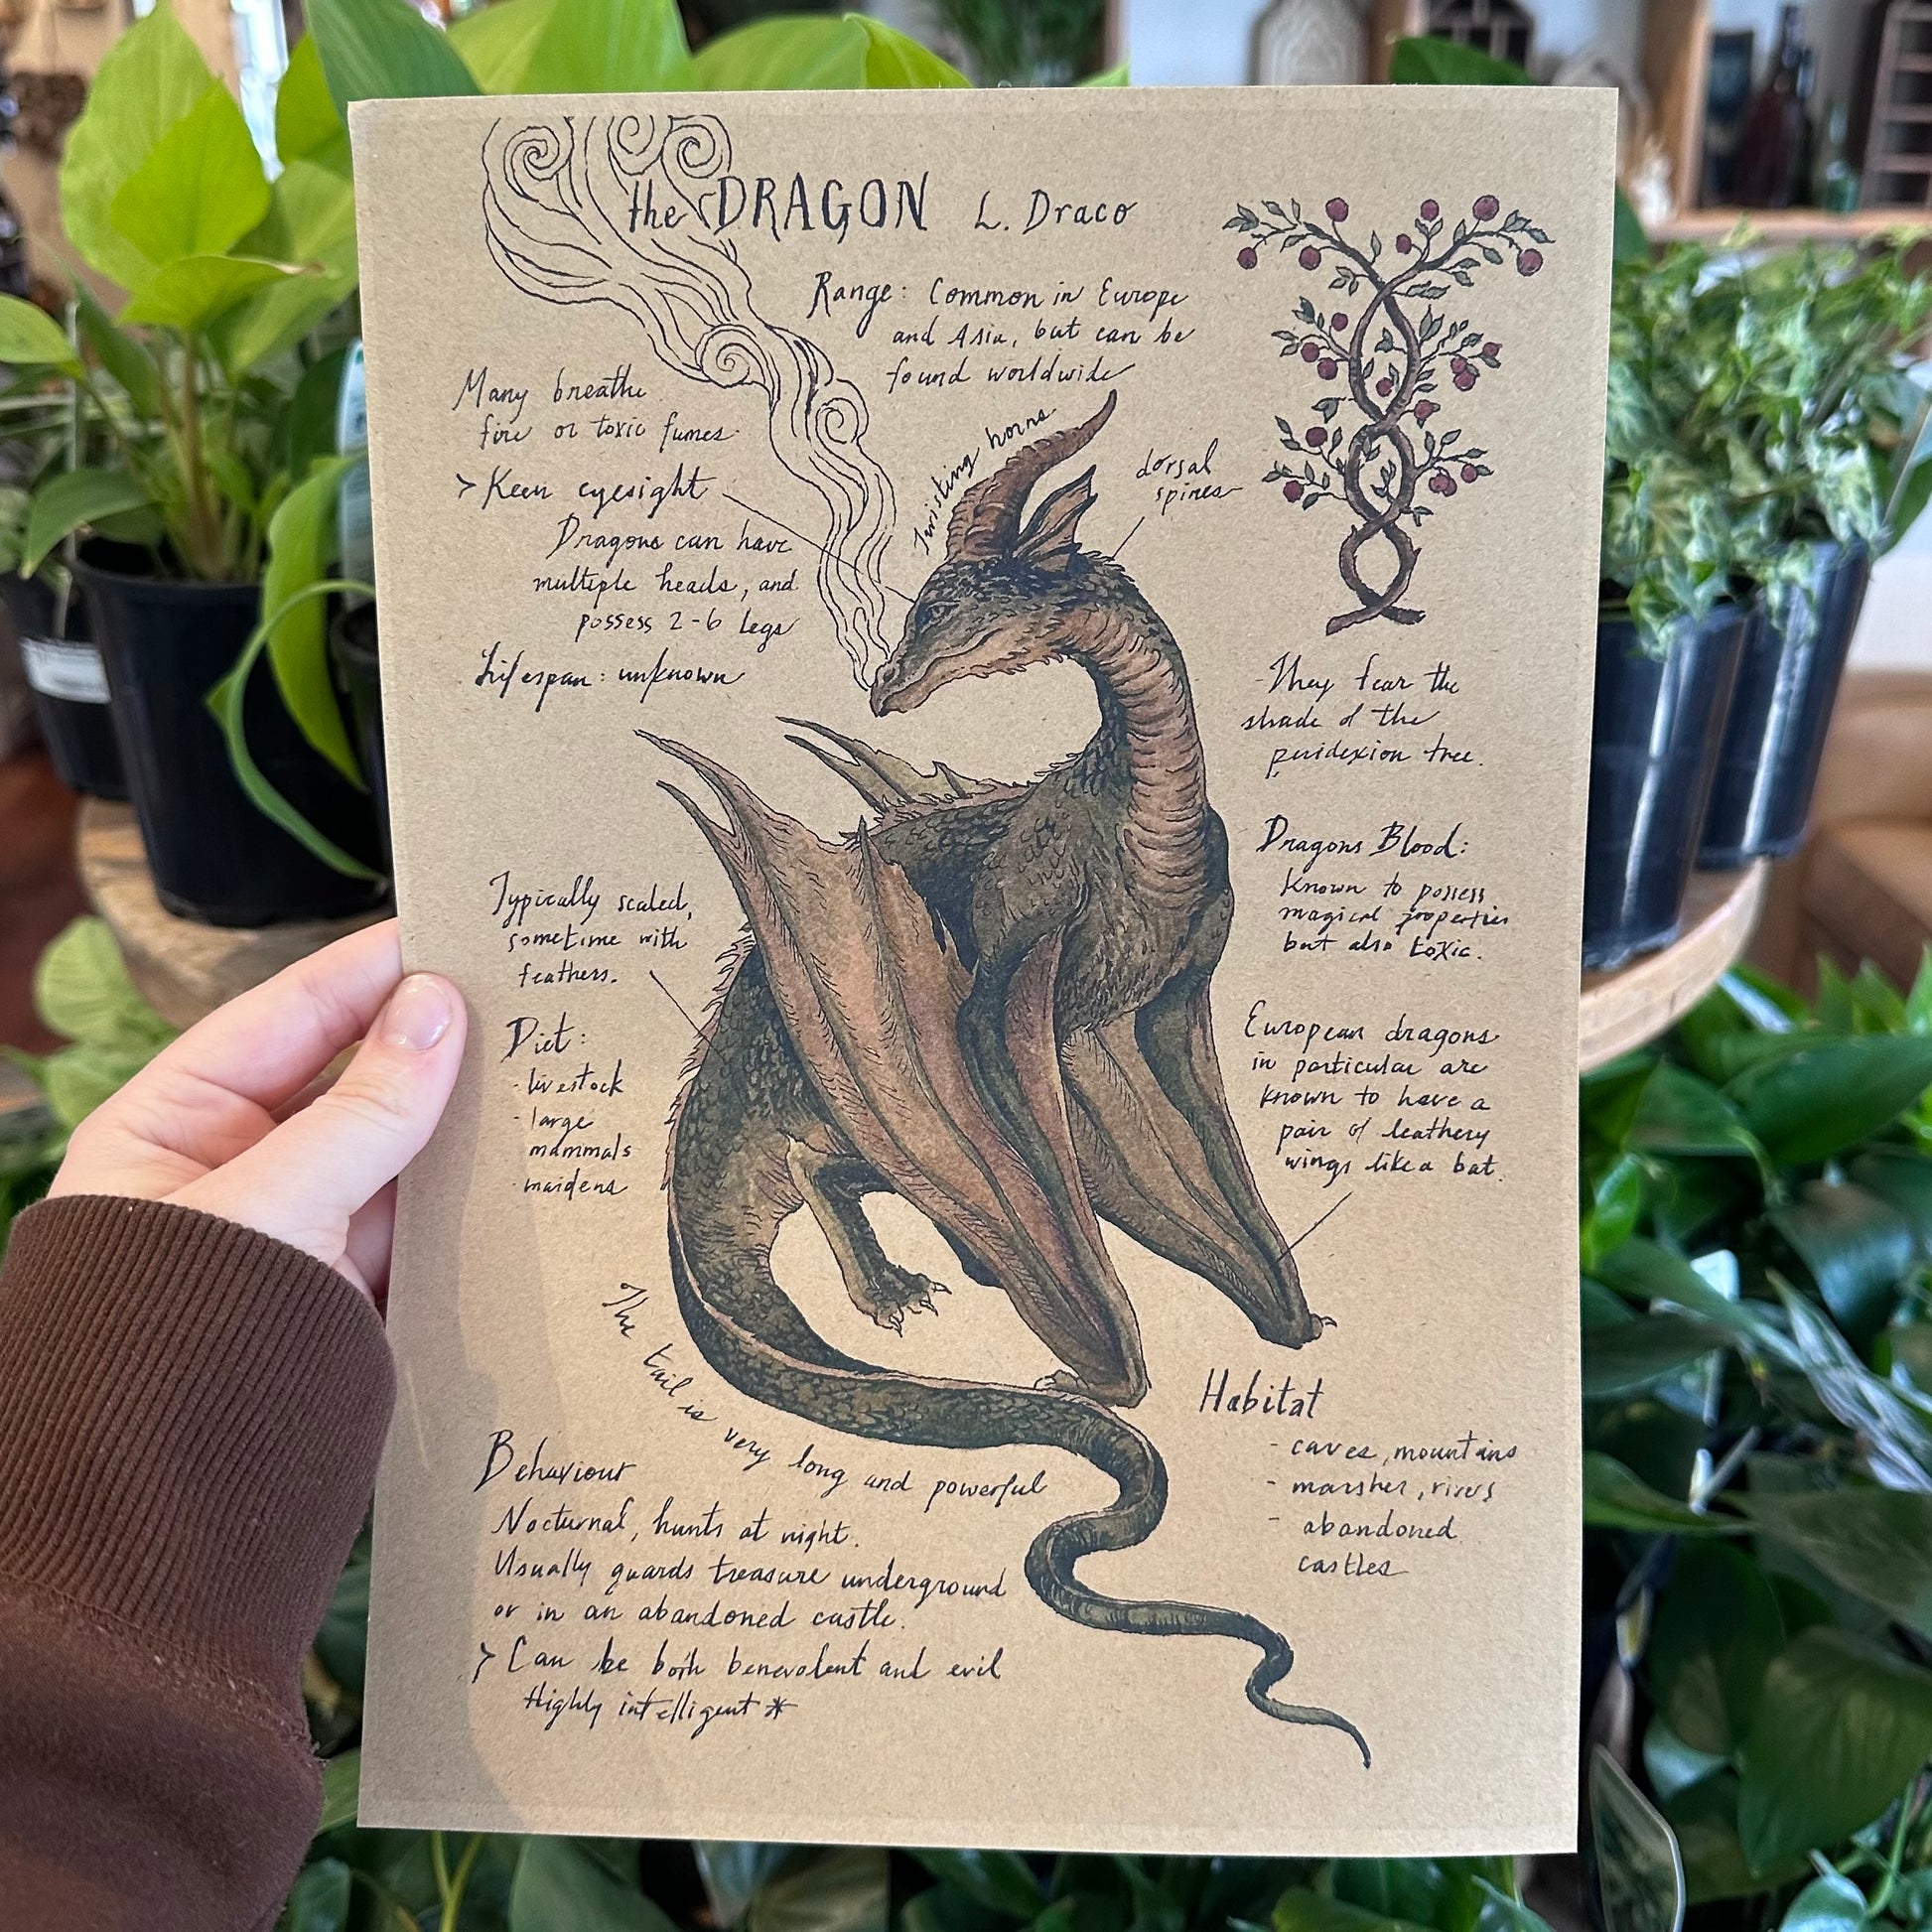 the DRAGON L. Draco
Range: Common in Europe
and Asia, but can be
found worldwide
Many breathe
fire or toxic fumes
> Keen eyesight
Dragons can have
multiple heads, and
possess 2-6 legs
Lifespan: unknown
Twisting horns
dorsal
spines
- They fear the
shade of the
peridexion tree.
Dragons Blood:
Known to possess
magical properties
but also toxic.
Typically scaled,
sometime with
feathers.
Diet:
- livestock
- large
mammals
- maidens
European dragons
in particular are
known to have a
pair of leathery
wings like a bat.
The tail is very long and powerful
Habitat
- caves, mountains
- marshes, rivers
- abandoned
castles
Behaviour
Nocturnal, hunts at night.
Usually guards treasure underground
or in an abandoned castle.
> Can be both benevolent and evil
Highly intelligent *